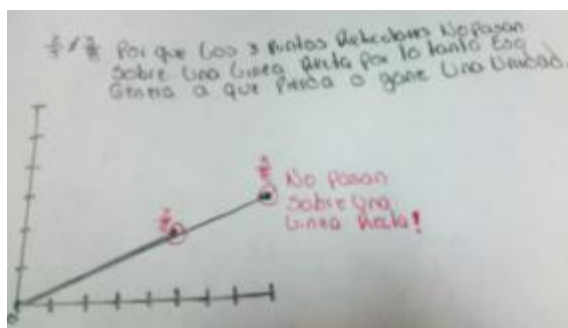 ≠ Por que Los 3 Puntos Reticulares No Pasan
Sobre Una Linea Recta Por lo tanto Eso
Genera a que Pierda o gane Una Unidad.
No Pasan
Sobre Una
Linea Recta!